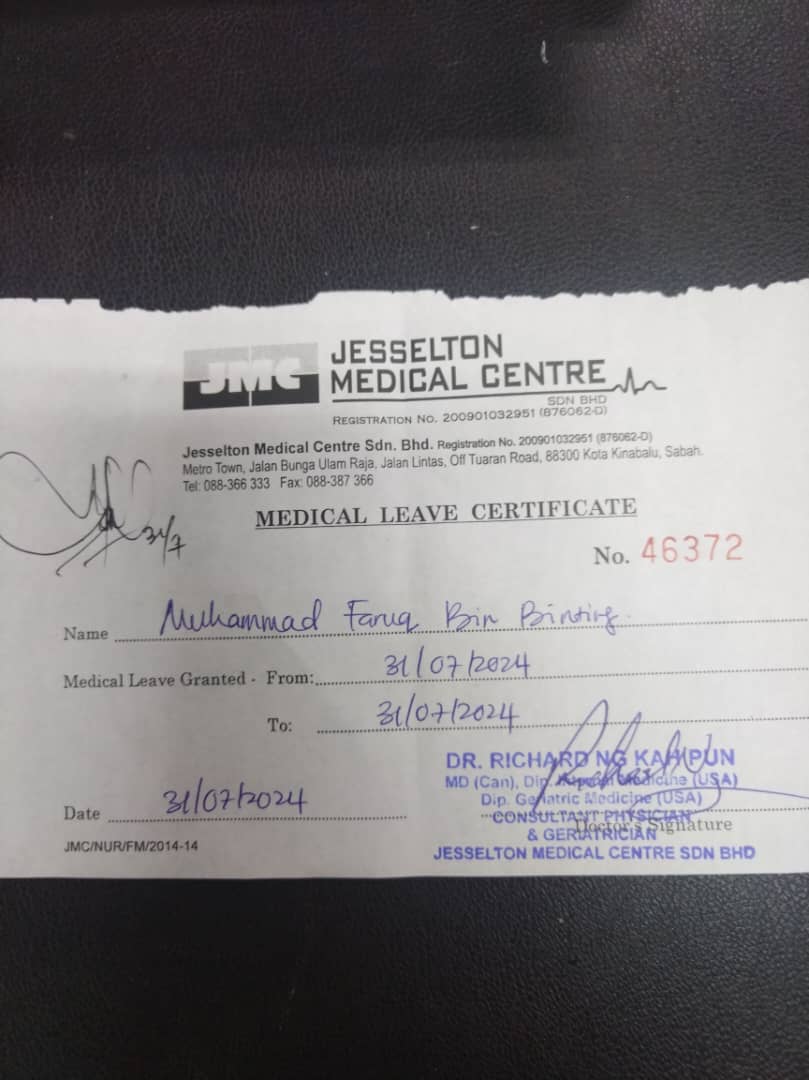 JMC
JESSELTON
MEDICAL CENTRE
SDN BHD
REGISTRATION No. 200901032951 (876062-D)
Jesselton Medical Centre Sdn. Bhd. Registration No. 200901032951 (876062-D)
Metro Town, Jalan Bunga Ulam Raja, Jalan Lintas, Off Tuaran Road, 88300 Kota Kinabalu, Sabah.
Tel: 088-366 333 Fax: 088-387 366
MEDICAL LEAVE CERTIFICATE
31/7
No. 46372
Name Muhammad Faruq Bin Binting
Medical Leave Granted - From: 31/07/2024
To: 31/07/2024
DR. RICHARD NG KAH PUN
MD (Can), Dip. Medicine (USA)
Dip. Geriatric Medicine (USA)
CONSULTANT PHYSICIAN
Date 31/07/2024
Doctor's Signature
& GERIATRICIAN
JMC/NUR/FM/2014-14
JESSELTON MEDICAL CENTRE SDN BHD